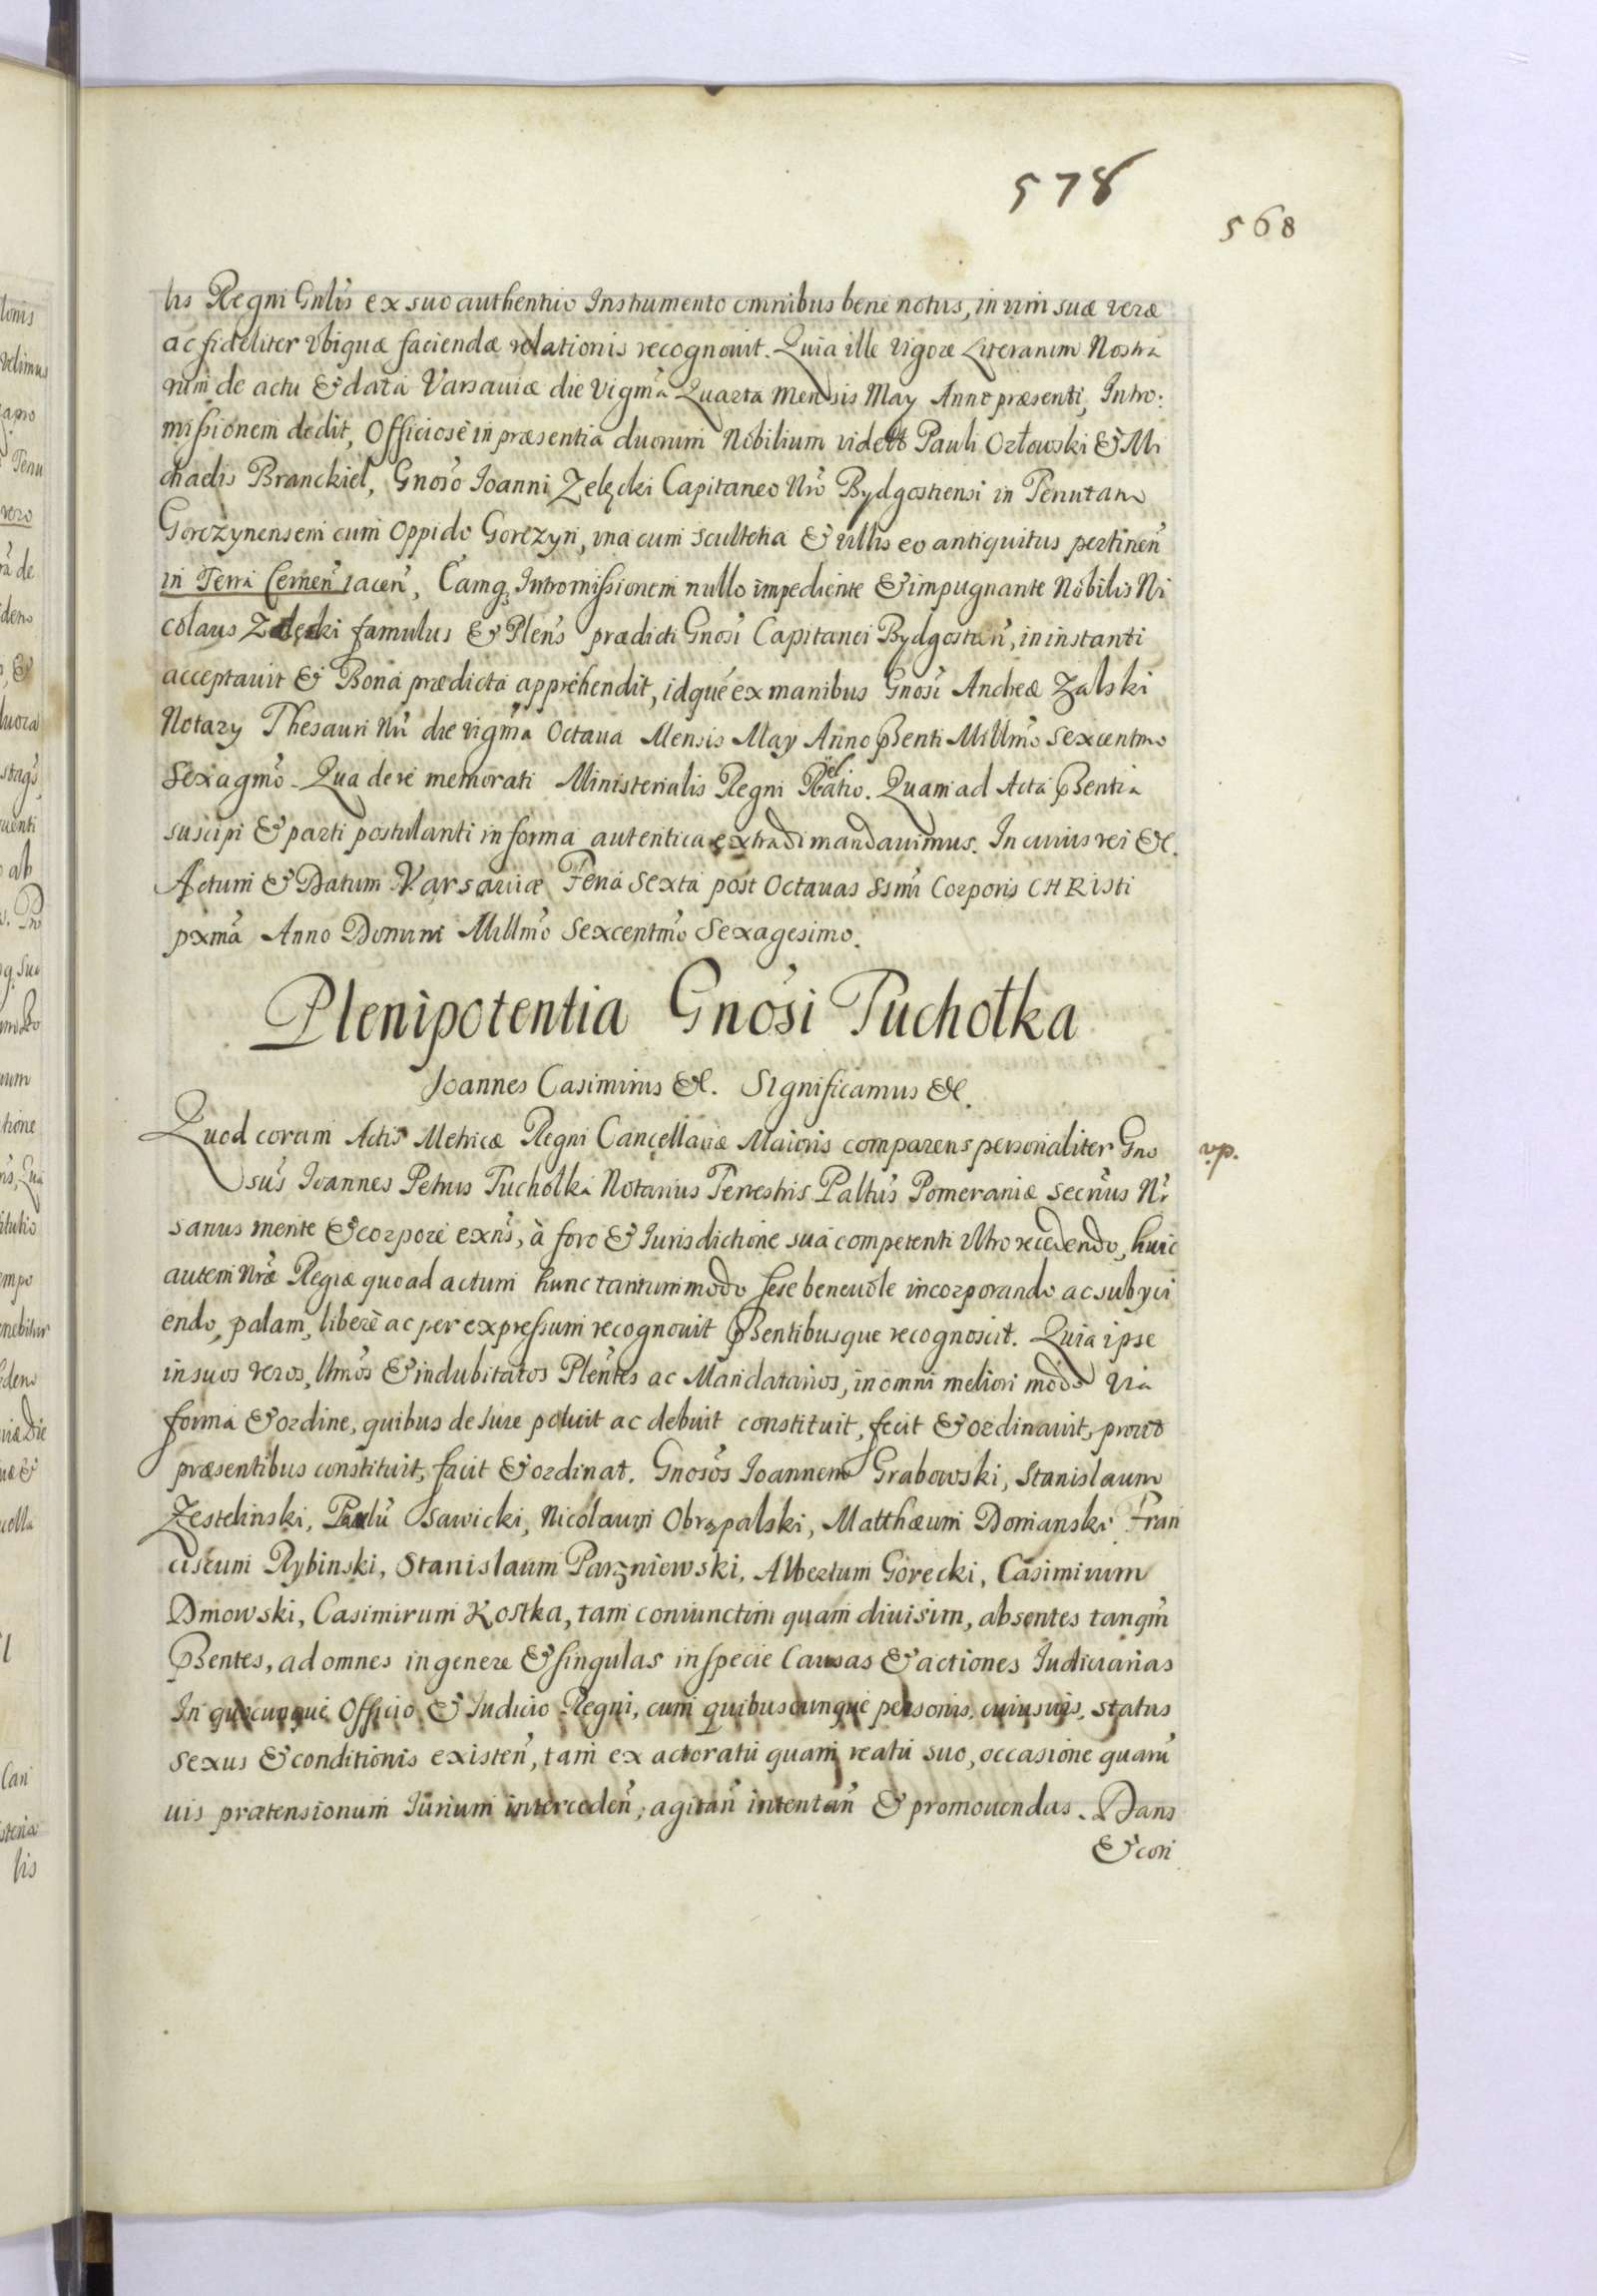 578
568
lis Regni Gnlis ex suo authentico Instrumento omnibus bene notus, in vim suæ veræ
ac fideliter vbiquæ faciendæ relationis recognouit. Quia ille vigore Literarum Nostra
rum de actu & data Varsauiæ die vigma Quarta Mensis May Anno præsenti, Intro:
missionem dedit, Officiose in præsentia duorum Nobilium videlt Pauli Orłowski & Mi
chaelis Branckiel, Gnoso Ioanni Zelęcki Capitaneo Nro Bydgostiensi in Tenutam
Gorczynensem cum Oppido Gorczyn, vna cum scultetia & villis eo antiquitus pertinen
in Terra Czernen iacen, Camq; Intromissionem nullo impediente & impugnante Nobilis Ni
colaus Zelęcki famulus & Plens prædicti Gnosi Capitanei Bydgostien, in instanti
acceptauit & Bona prædicta apprehendit, idque ex manibus Gnosi Andreæ Zalski
Notary Thesauri Nri die vigma Octaua Mensis May Anno Psenti Millmo Sexcentmo
Sexagmo. Qua de re memorati Ministerialis Regni Relatio. Quam ad Acta Psentia
suscipi & parti postulanti in forma autentica extradi mandauimus. In cuius rei &c.
Actum & Datum Varsauiæ Feria Sexta post Octauas Ssmi Corporis CHRISti
pxma Anno Domini Millmo Sexcentmo Sexagesimo.
Plenipotentia Gnosi Tuchołka
Joannes Casimirus &c. Significamus &c.
Quod coram Actis Metricæ Regni Cancellariæ Maioris comparens personaliter Gno
sus Ioannes Petrus Tuchołka Notarius Terrestris Paltus Pomeraniæ Secrius Nr
sanus mente & corpore exns, à foro & Iurisdictione sua competenti vltro recedendo, huic
autem Nræ Regiæ quoad actum hunc tantummodo sese beneuole incorporando ac subyci
endo, palam, liberè ac per expressum recognouit Psentibusque recognoscit. Quia ipse
in suos veros, lltmos & indubitatos Plentes ac Mandatarios, in omni meliori modo via
forma & ordine, quibus de Iure potuit ac debuit constituit, fecit & ordinauit, prout
præsentibus constituit, facit & ordinat. Gnosos Ioannem Grabowski, Stanislaum
Zestelinski, Paulu Sawicki, Nicolaum Obrąpalski, Matthæum Domanski Fran
ciscum Rybinski, Stanislaum Parzniewski, Albertum Gorecki, Casimirum
Dmowski, Casimirum Kostka, tam coniunctim quam diuisim, absentes tanqm
Psentes, ad omnes in genere & singulas in specie Causas & actiones Iudiciarias
In quocunque Officio & Iudicio Regni, cum quibuscunque personis, cuiusuis, status
sexus & conditionis existen, tam ex actoratu quam reatu suo, occasione quaru
uis prætensionum Iurium interceden, agitan intentan & promouendas. Dans
& con
vp.